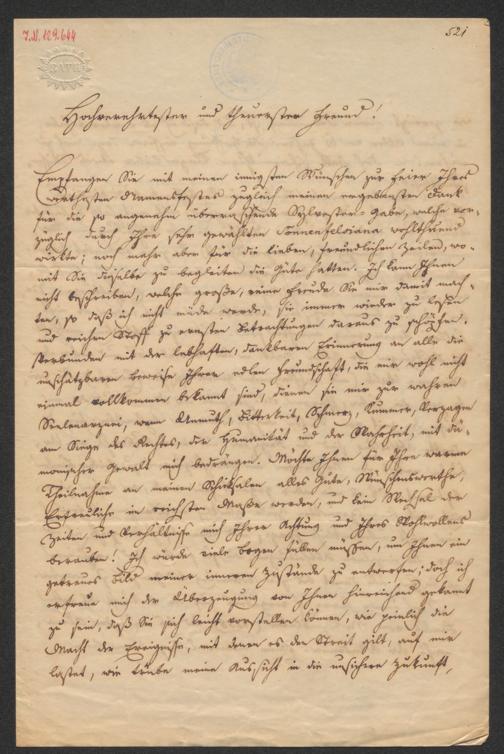 I.N. 129.644
521
BATH
Hochverehrtester und theuerster Freund!
Empfangen Sie mit meinen innigsten Wünschen zur Feier Ihres
werthesten Namensfestes zugleich meinen ergebensten Dank
für die so angenehm überraschende Sylvester-Gabe, welche vor-
züglich durch Ihre sehr gewählten Sonnenfelsiana wohlthuend
wirkte; noch mehr aber für die lieben, freundlichen Zeilen, wo-
mit Sie dieselbe zu begleiten die Güte hatten. Ich kann Ihnen
nicht beschreiben, welche große, reine Freude Sie mir damit mach-
ten, so daß ich nicht müde werde, sie immer wieder zu lesen
und reichen Stoff zu ernsten Betrachtungen daraus zu schöpfen.
Verbunden mit der lebhaften, dankbaren Erinnerung an alle die
unschätzbaren Beweise Ihrer edlen Freundschaft, die mir wohl nicht
einmal vollkommen bekannt sind, dienen sie mir zur wahren
Seelenarznei, wenn Unmuth, Bitterkeit, Schmerz, Kummer, Verzagen
am Siege des Rechtes, der Humanität und der Wahrheit, mit dä-
monischer Gewalt mich bedrängen. Möchte Ihnen für Ihre warme
Theilnahme an meinen Schicksalen alles Gute, Wünschenswerthe,
Erfreuliche in reichstem Maße werden, und kein Wechsel der
Zeiten und Verhältnisse mich Ihrer Achtung und Ihres Wohlwollens
berauben! Ich würde viele Bogen füllen müssen, um Ihnen ein
getreues Bild meiner inneren Zustände zu entwerfen; doch ich
erfreue mich der Überzeugung von Ihnen hinreichend gekannt
zu sein, daß Sie sich leicht vorstellen können, wie peinlich die
Macht der Ereignisse, mit denen es den Streit gilt, auf mir
lastet, wie trübe meine Aussicht in die unsichere Zukunft,